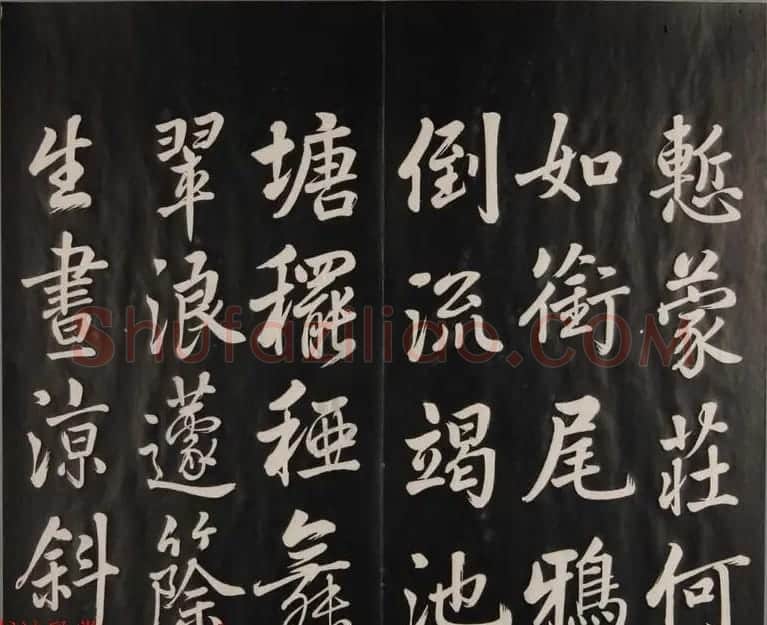 慙蒙莊何
如銜尾鴉
倒流竭池
塘䆉稏舞
翠浪籧篨
生晝涼斜
Shufaziliao.COM